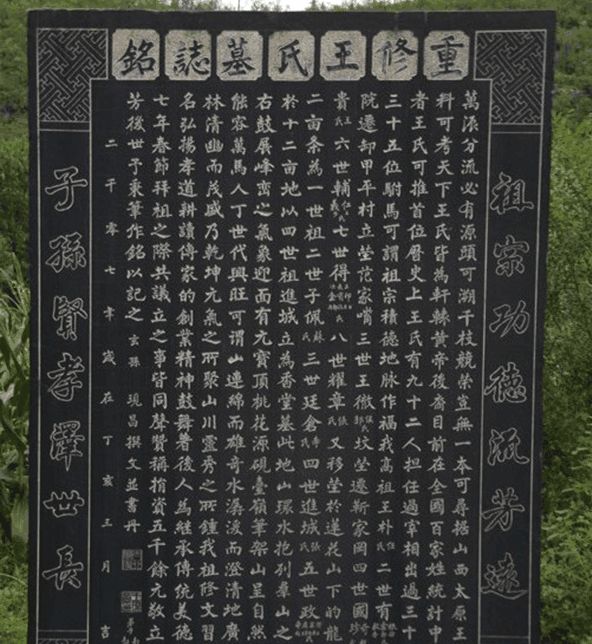 重修王氏墓誌銘
祖宗功德流芳遠
萬派分流必有源頭可溯千枝競榮豈無一本可尋據山西太原
料可考天下王氏皆為軒轅黃帝後裔目前在全國百家姓統計中
者王氏可推首位曆史上王氏有九十二人担任過宰相出過三十
三十五位駙馬可謂祖宗積德地脉作福我高祖王朴氏二世有
院遷卸甲平村立塋范家嘴三世王徹氏坟塋遷新家岡四世國
貴氏六世輔氏七世得氏八世耀章氏又移塋於蓮花山下的龍
二亩条為一世祖二世子佩氏三世廷倉氏四世進城氏五世政
於十二亩地以四世祖進城立為香堂墓此地山環水抱列羣山之
右鼓展峰峦之氣象迎面有元寶頂桃花源硯臺嶺筆架山呈自然
能容萬馬人丁世代興旺可謂山連綿而雄奇水潺湲而澄清地廣
林清幽而茂盛乃乾坤元氣之所聚山川靈秀之所鍾我祖修文習
名弘揚孝道耕讀傳家的創業精神鼓舞着後人為継承傳統美德
七年春節拜祖之際共議立之事皆同聲賛稱捐資五千餘元敬立
芳後世予秉筆作銘以記之 玄孫 現昌撰文並書丹
二千零七年歲在丁亥三月吉
子孫賢孝澤世長